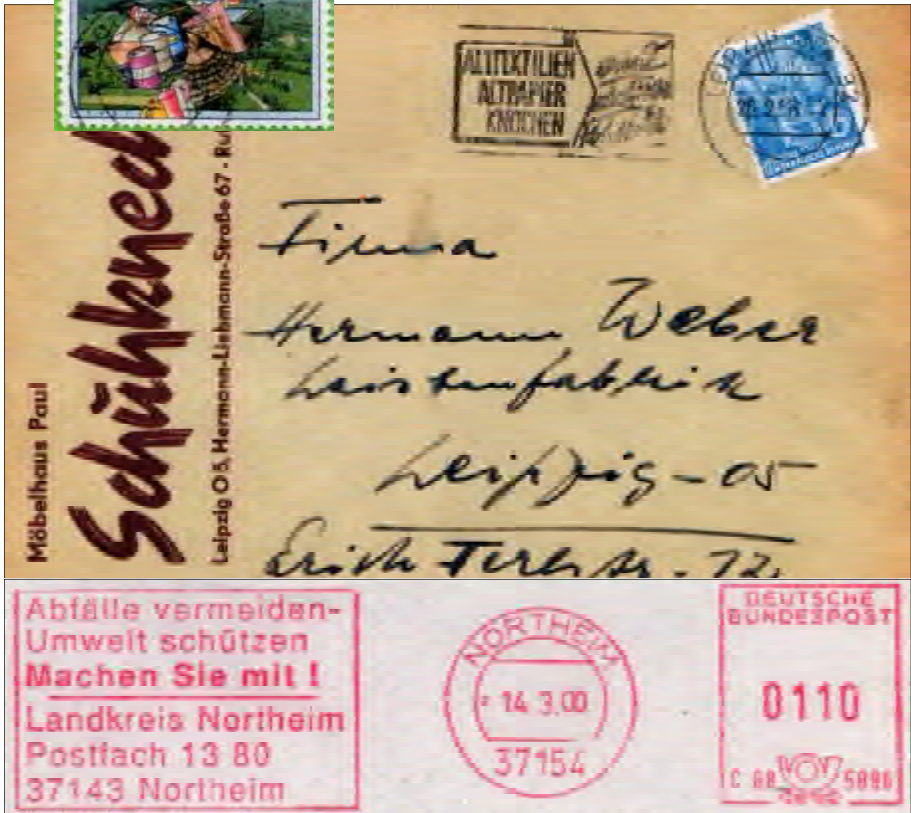 ALTTEXTILIEN
ALTPAPIER
KNOCHEN
Möbelhaus Paul
Schühknec
Leipzig O 5, Hermann-Liebmann-Straße 67 · Ru
Firma
Hermann Weber
Leistenfabrik
Leipzig - O5
Erich Ferlstr. 12
Abfälle vermeiden-
Umwelt schützen
Machen Sie mit !
Landkreis Northeim
Postfach 13 80
37143 Northeim
NORTHEIM
14.3.00
37154
DEUTSCHE
BUNDESPOST
0110